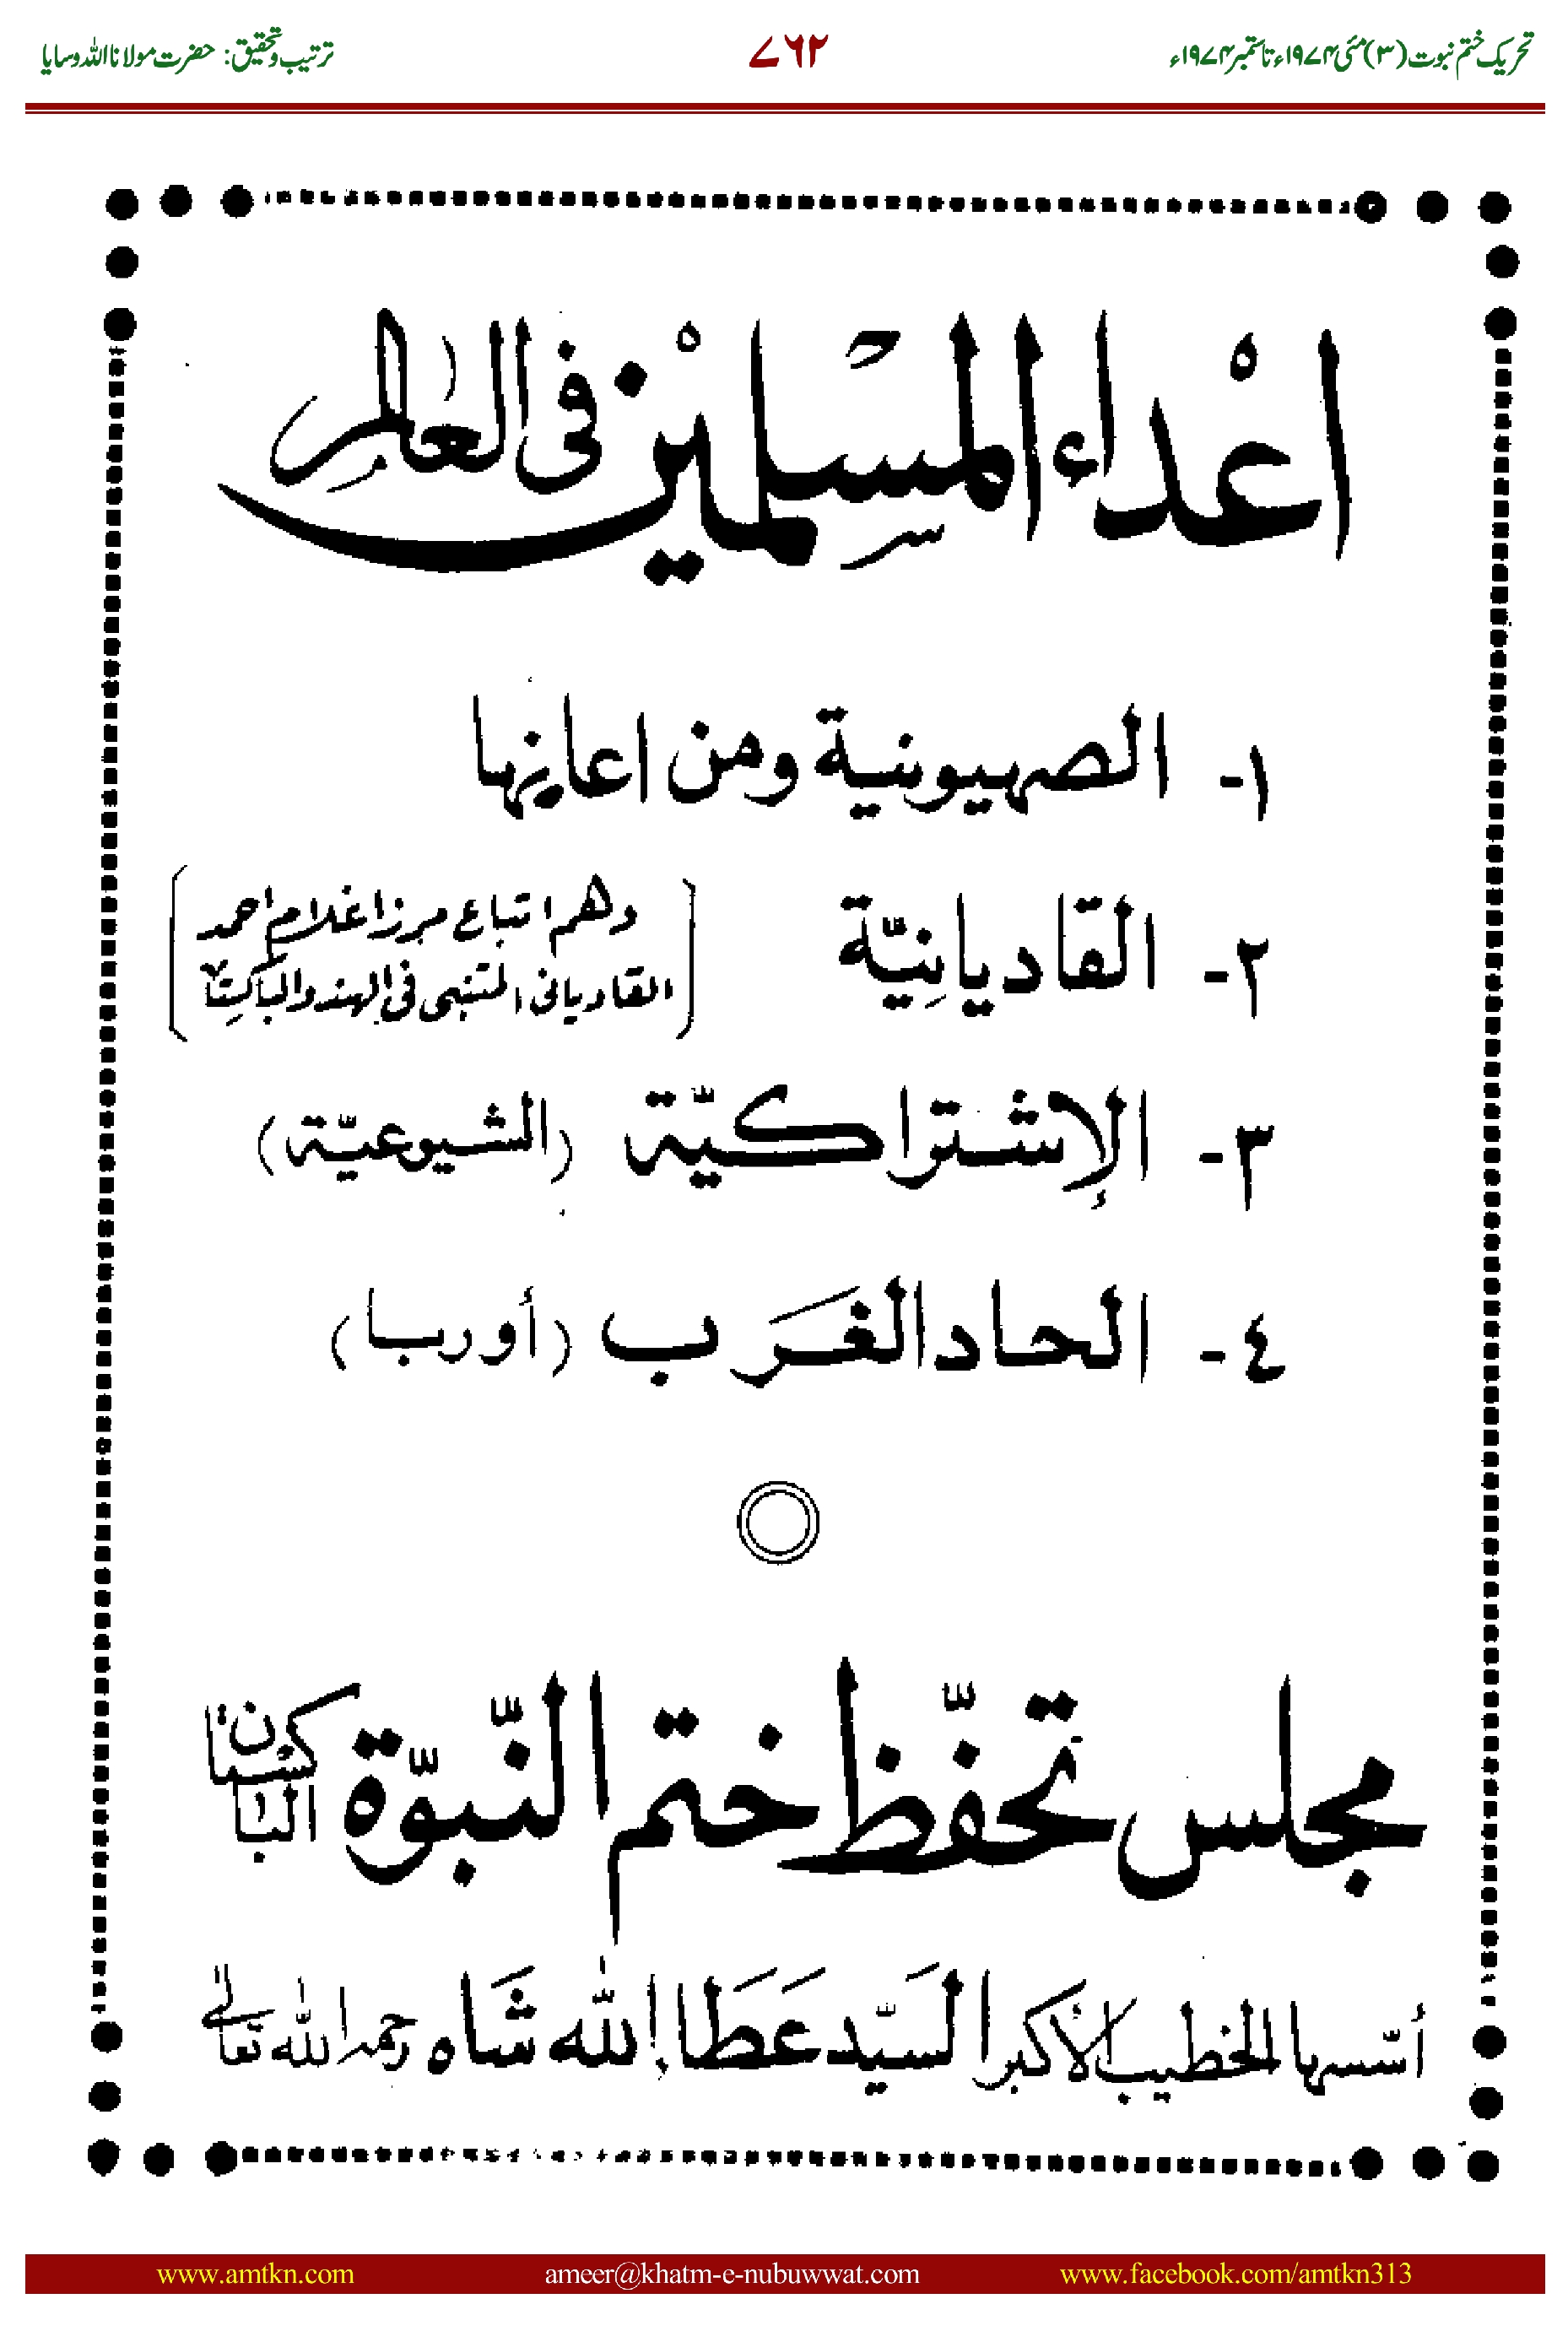 تحریک ختم نبوت (۳) مئی ۱۹۷۴ء تا ستمبر ۱۹۷۴ء
۷۶۲
ترتیب و تحقیق: حضرت مولانا اللہ وسایا
اعْداء المسلميْن في العالم
١- الصهيونية ومن اعانها
٢- القاديانِيّة
(وهم اتباع مرزا غلام احمد
القادياني المتنبي في الهند والباكستان)
٣- الإشتراكيّة (الشيوعيّة)
٤- الحاد الغَرب (أوربا)
مجلس تحفّظ ختم النّبوّة الباكستان
أسّسها الخطيب الأكبر السَيّد عَطَاء الله شَاه رحمه الله تعالى
www.amtkn.com
ameer@khatm-e-nubuwwat.com
www.facebook.com/amtkn313